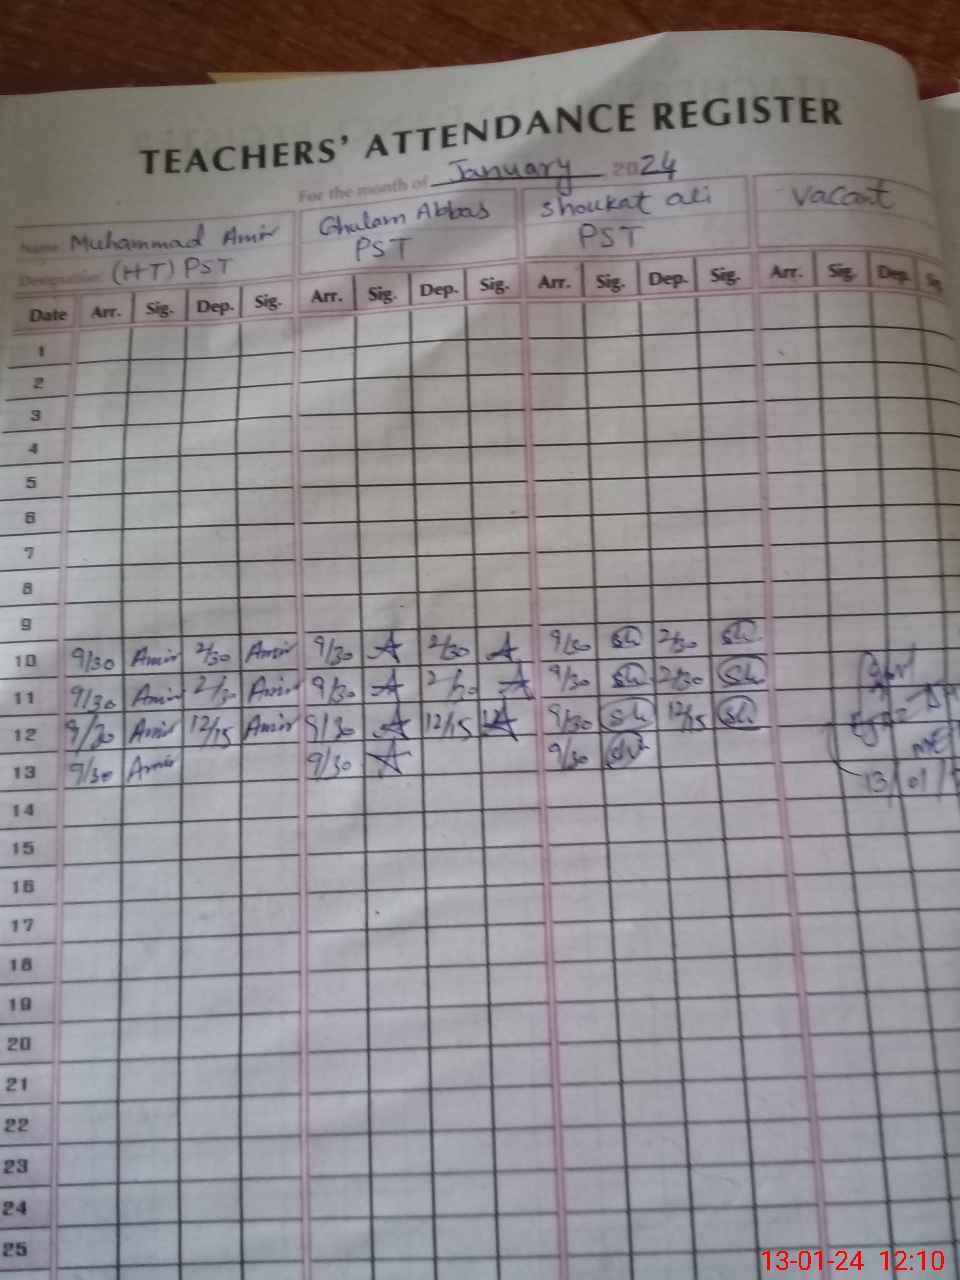 TEACHERS' ATTENDANCE REGISTER
For the month of January 2024
Name Muhammad Amir Ghulam Abbas Shoukat Ali Vacant
Designation (HT) PST PST PST
Date Arr. Sig. Dep. Sig. Arr. Sig. Dep. Sig. Arr. Sig. Dep. Sig. Arr. Sig. Dep. Sig.
1
2
3
4
5
6
7
8
9
10 9/30 Amir 2/30 Amir 9/30 A 2/30 A 9/30 Sh 2/30 Sh
11 9/30 Amir 2/30 Amir 9/30 A A 9/30 Sh 2/30 Sh
12 9/30 Amir 12/15 Amir 9/30 A 12/15 A 9/30 Sh 12/15 Sh
13 9/30 Amir 9/30 A 9/30
13/01/
14
15
16
17
18
19
20
21
22
23
24
25
13-01-24 12:10